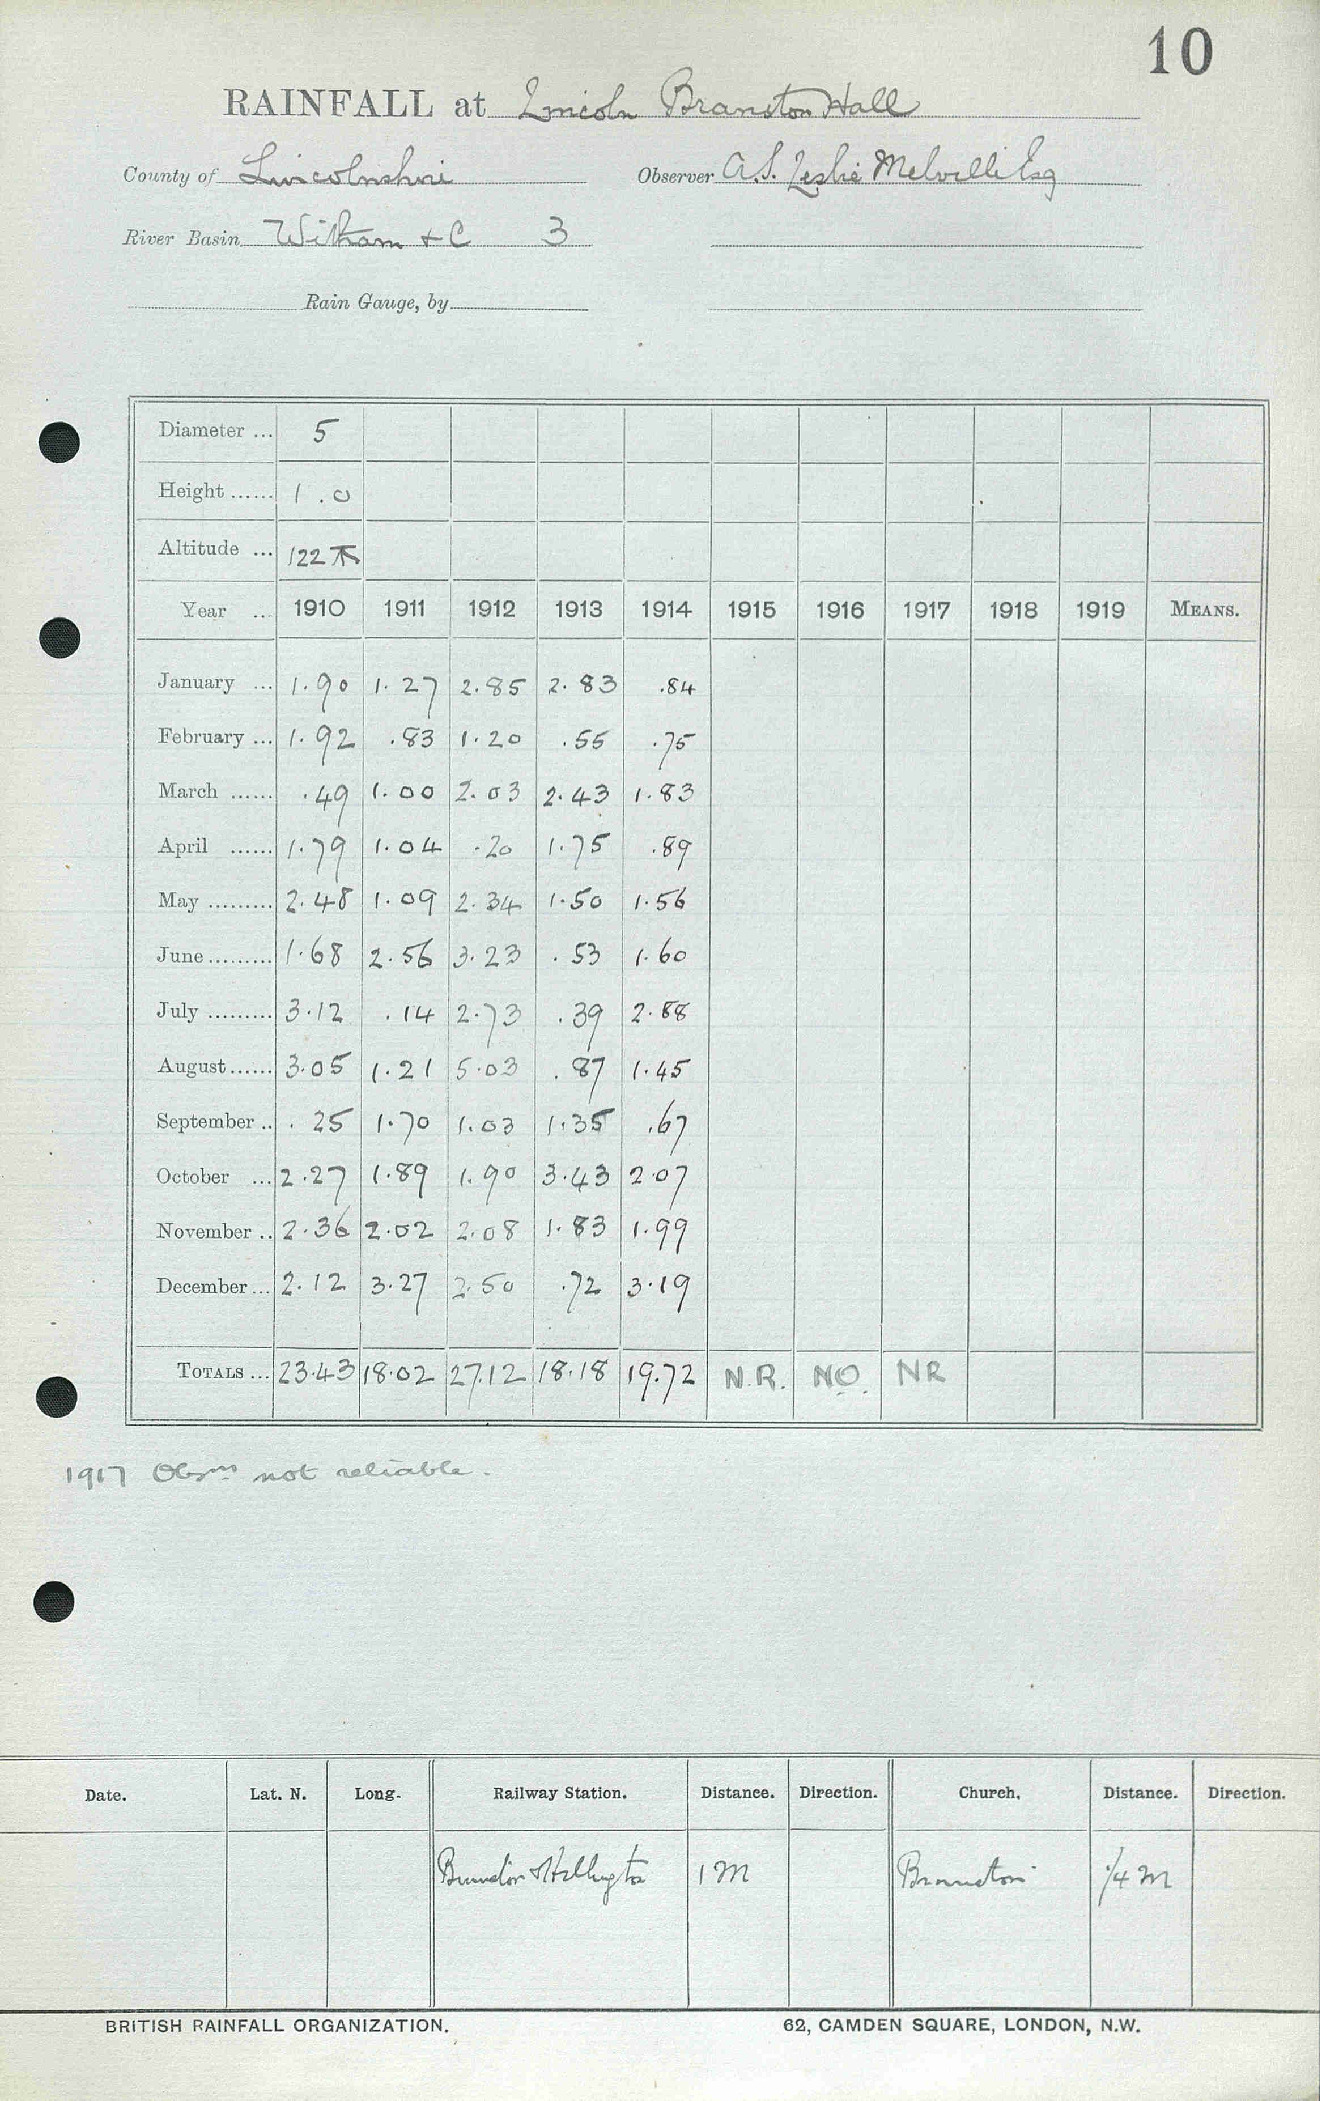 10
RAINFALL at Lincoln Branston Hall
County of Lincolnshire Observer A.S. Leslie Melville Esq
River Basin Witham + C 3
Rain Gauge, by
Diameter ... 5
Height ...... 1.0
Altitude ... 122
Year ... 1910 1911 1912 1913 1914 1915 1916 1917 1918 1919 MEANS.
January ... 1.90 1.27 2.85 2.83 .84
February ... 1.92 .83 1.20 .55 .75
March ...... .49 1.00 2.03 2.43 1.83
April ...... 1.79 1.04 .20 1.75 .89
May ......... 2.48 1.09 2.34 1.50 1.56
June ......... 1.68 2.56 3.23 .53 1.60
July ......... 3.12 .14 2.73 .39 2.88
August ...... 3.05 1.21 5.03 .87 1.45
September .. .25 1.70 1.03 1.35 .67
October ... 2.27 1.89 1.90 3.43 2.07
November .. 2.36 2.02 2.08 1.83 1.99
December ... 2.12 3.27 2.50 .72 3.19
TOTALS ... 23.43 18.02 27.12 18.18 19.72 N.R. NO. NR
1917 Obsns not reliable.
Date. Lat. N. Long. Railway Station. Distance. Direction. Church. Distance. Direction.
Branston & Heighington 1 M Branston 1/4 M
BRITISH RAINFALL ORGANIZATION. 62, CAMDEN SQUARE, LONDON, N.W.